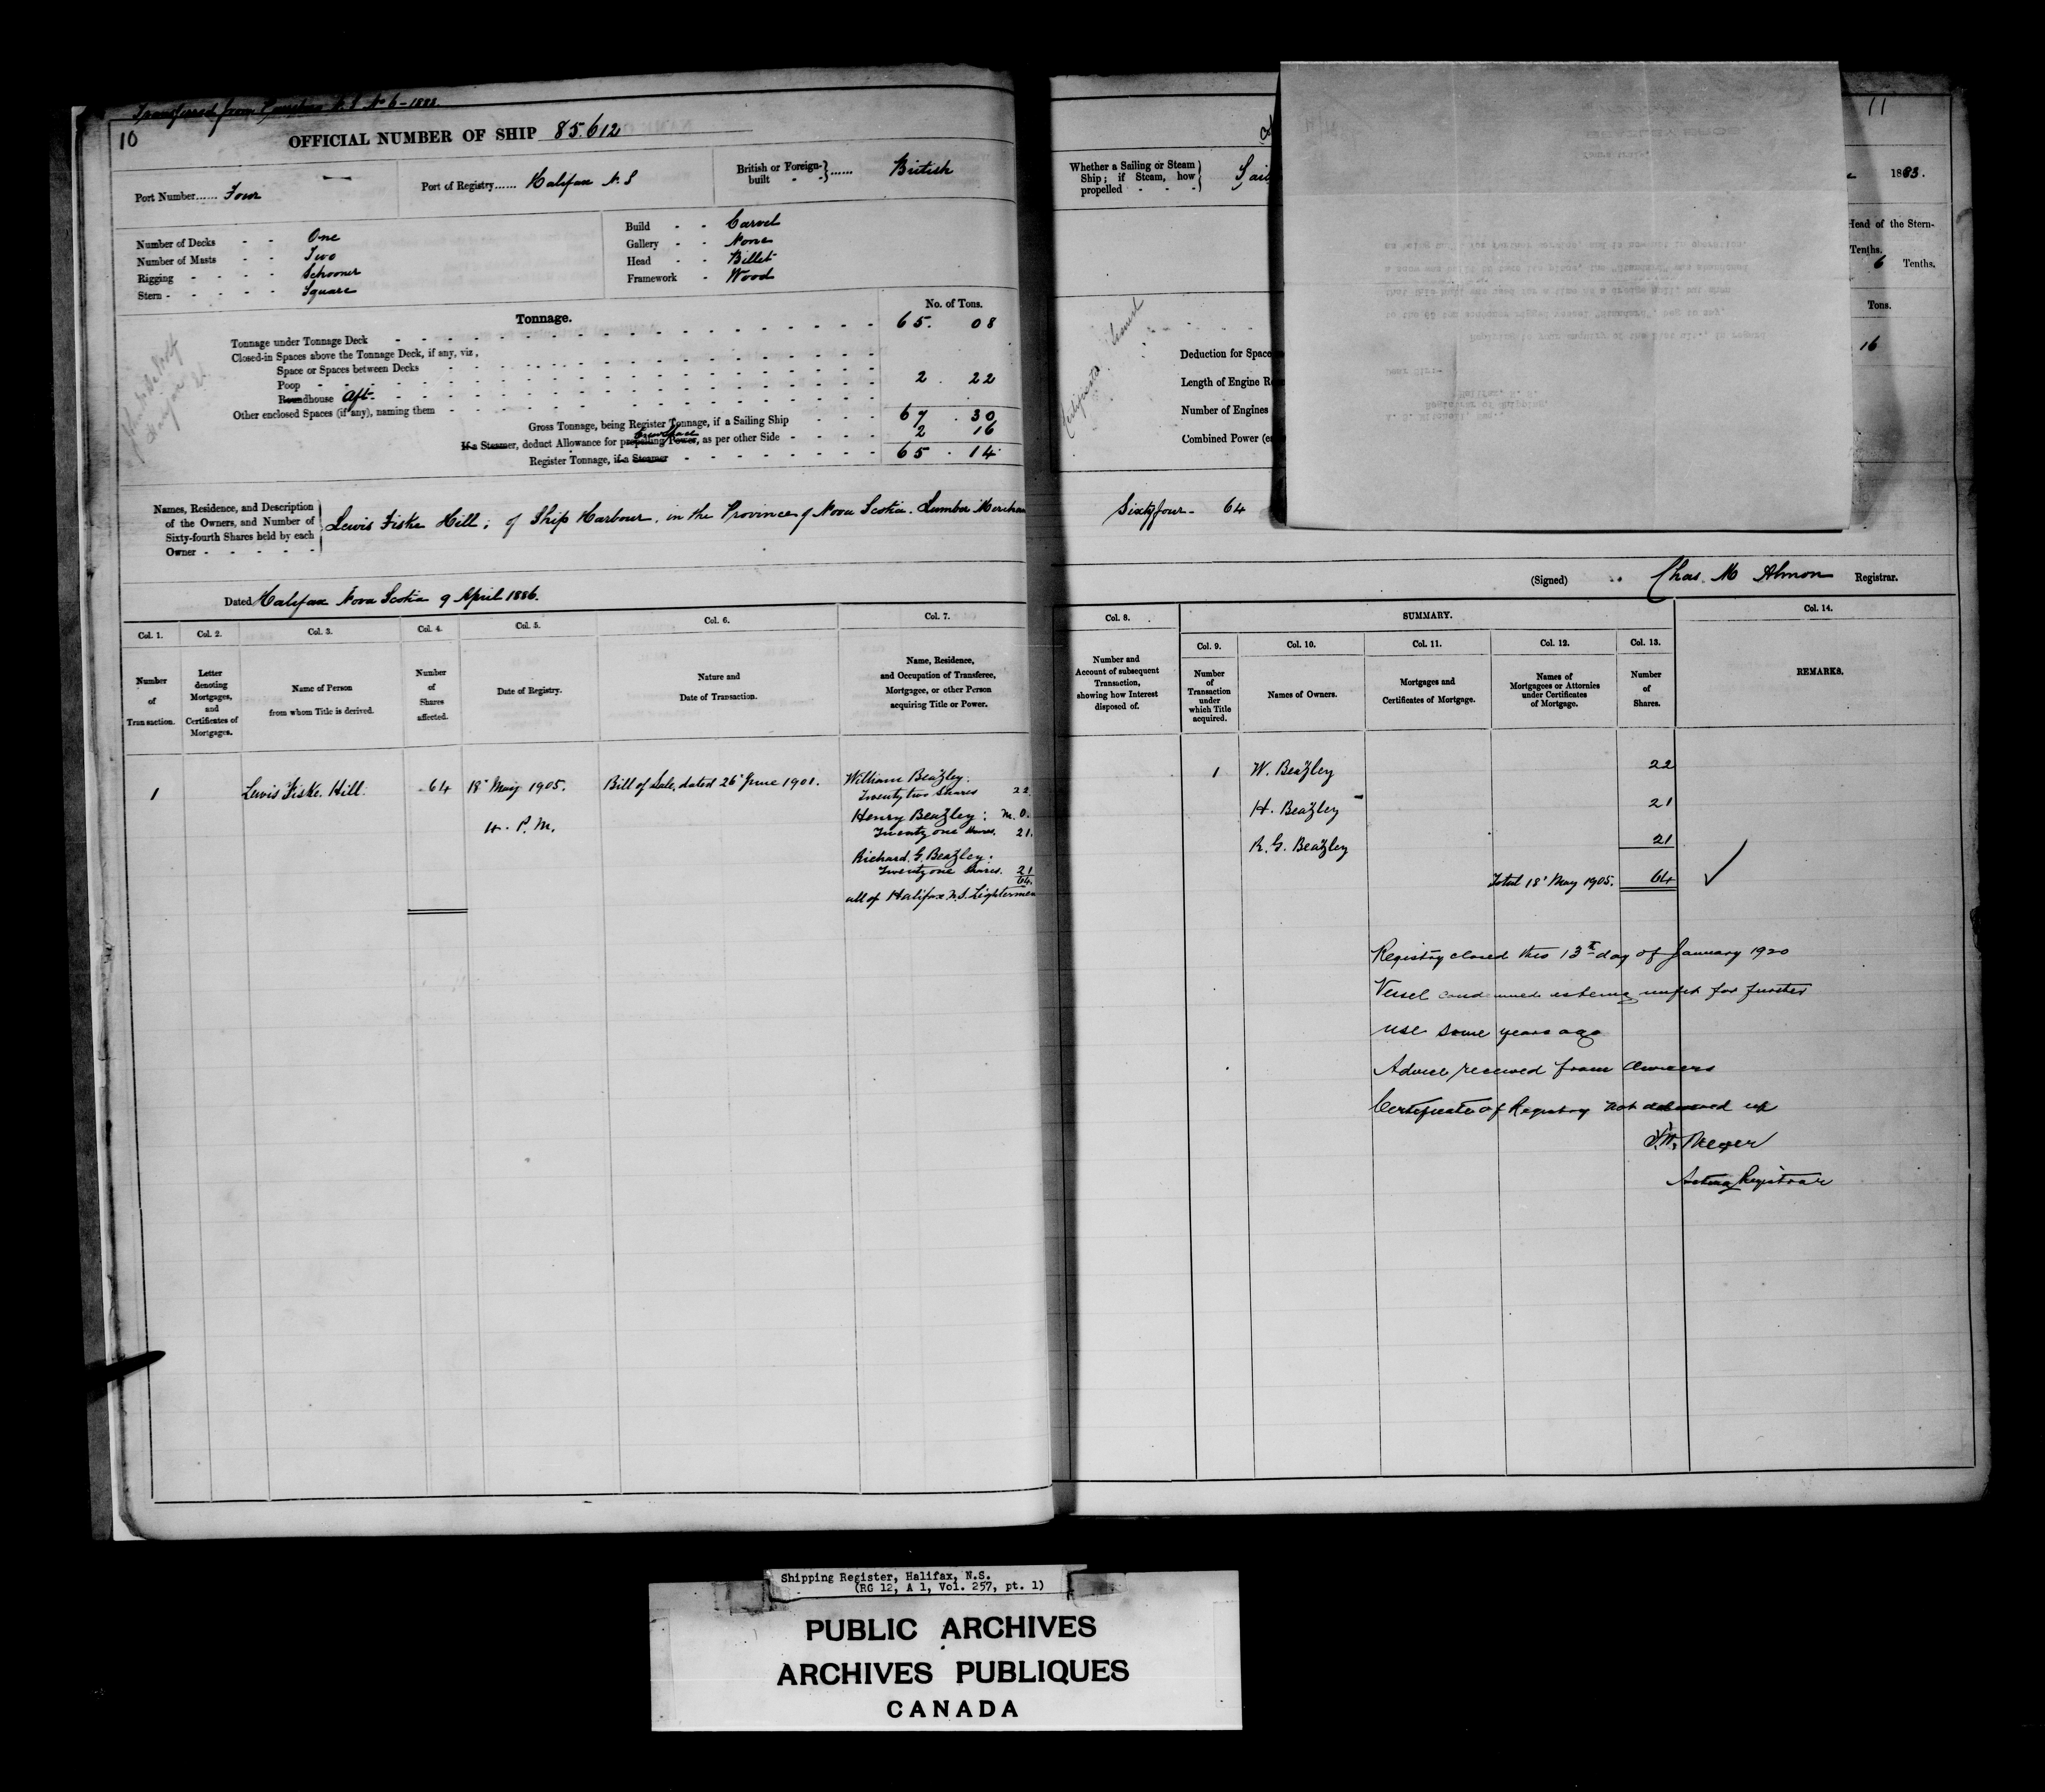 Transferred from N.S No 6 - 1883.
10
OFFICIAL NUMBER OF SHIP 85.612
Port Number...... Four
Port of Registry...... Halifax N.S
British or Foreign-built...... British
Number of Decks - - One
Number of Masts - - Two
Rigging - - - - Schooner
Stern - - - - - Square
Build - - Carvel
Gallery - - None
Head - - Billet
Framework - Wood
Tonnage.
No. of Tons.
Tonnage under Tonnage Deck 65. 08
Closed-in Spaces above the Tonnage Deck, if any, viz,
Space or Spaces between Decks
Poop 2. 22
Roundhouse Aft
Other enclosed Spaces (if any), naming them
Gross Tonnage, being Register Tonnage, if a Sailing Ship 67. 30
If a Steamer, deduct Allowance for propelling Power, as per other Side 2 16
Register Tonnage, if a Steamer 65. 14
Names, Residence, and Description
of the Owners, and Number of
Sixty-fourth Shares held by each
Owner - - - - -
Lewis Fiske Hill; of Ship Harbour, in the Province of Nova Scotia. Lumber Merchan
Dated Halifax Nova Scotia 9 April 1886.
Col. 1.
Number
of
Transaction.
Col. 2.
Letter
denoting
Mortgages,
and
Certificates of
Mortgages.
Col. 3.
Name of Person
from whom Title is derived.
Col. 4.
Number
of
Shares
affected.
Col. 5.
Date of Registry.
Col. 6.
Nature and
Date of Transaction.
Col. 7.
Name, Residence,
and Occupation of Transferee,
Mortgagee, or other Person
acquiring Title or Power.
1 Lewis Fiske. Hill. 64 18" May 1905. Bill of Sale, dated 26" June 1901. William Beazley.
Twenty two Shares 22
4. P.M.
Henry Beazley: M.O.
Twenty one Shares. 21.
Richard. G. Beazley:
Twenty one Shares. 21
64.
all of Halifax N.S. Lightermen
11
Whether a Sailing or Steam
Ship; if Steam, how
propelled - - -
Sail
1883.
Head of the Stern-
Tenths.
6 Tenths.
Tons.
16
Certificate
Deduction for Space
Length of Engine R
Number of Engines
Combined Power (e
Sixty four - 64
(Signed) Chas. M Almon Registrar.
Col. 8.
Number and
Account of subsequent
Transaction,
showing how Interest
disposed of.
SUMMARY.
Col. 9.
Number
of
Transaction
under
which Title
acquired.
Col. 10.
Names of Owners.
Col. 11.
Mortgages and
Certificates of Mortgage.
Col. 12.
Names of
Mortgagees or Attornies
under Certificates
of Mortgage.
Col. 13.
Number
of
Shares.
Col. 14.
REMARKS.
1 W. Beazley 22
H. Beazley 21
R. G. Beazley 21
Total 18" May 1905. 64
Registry closed this 13th day of January 1920
Vessel condemned as being unfit for further
use some years ago
Advice received from Owners
Certificate of Registry not delivered up
Acting Registrar
Shipping Register, Halifax, N.S.
(RG 12, A 1, Vol. 257, pt. 1)
PUBLIC ARCHIVES
ARCHIVES PUBLIQUES
CANADA